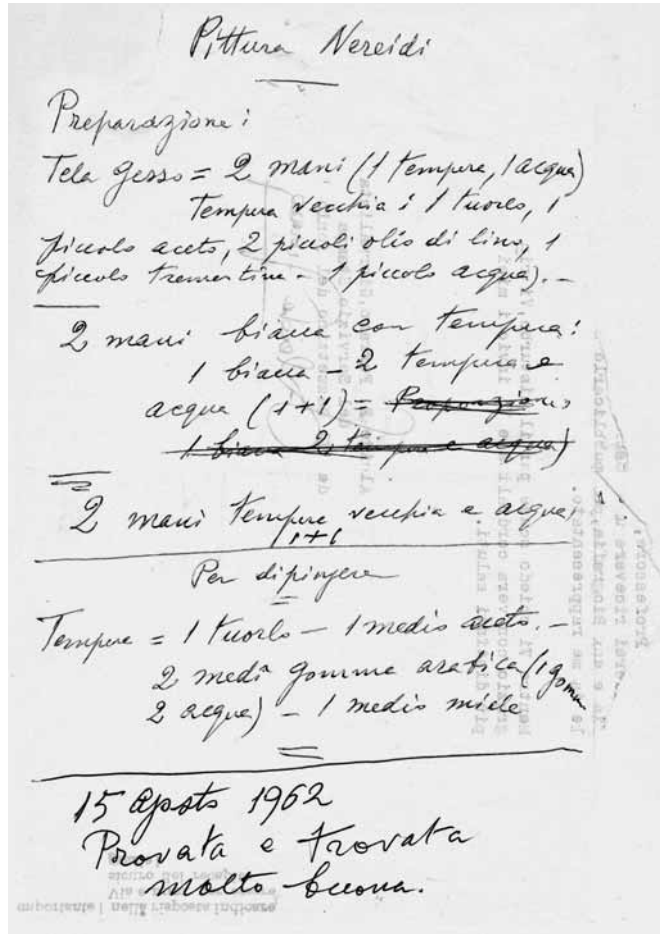 Pittura Nereidi
Preparazione:
Tela gesso = 2 mani (1 tempera, 1 acqua)
Tempera vecchia: 1 tuorlo, 1
piccolo aceto, 2 piccoli olio di lino, 1
piccolo trementina - 1 piccolo acqua). -
2 mani biacca con tempera:
1 biacca - 2 tempera e
acqua (1+1) = Proporzione
1 biacca 2 tempera e acqua)
2 mani tempera vecchia e acqua)
1+1
Per dipingere
Tempera = 1 tuorlo - 1 medio aceto. -
2 medi gomma arabica (1 gomma
2 acqua) - 1 medio miele
15 agosto 1962
Provata e trovata
molto buona.